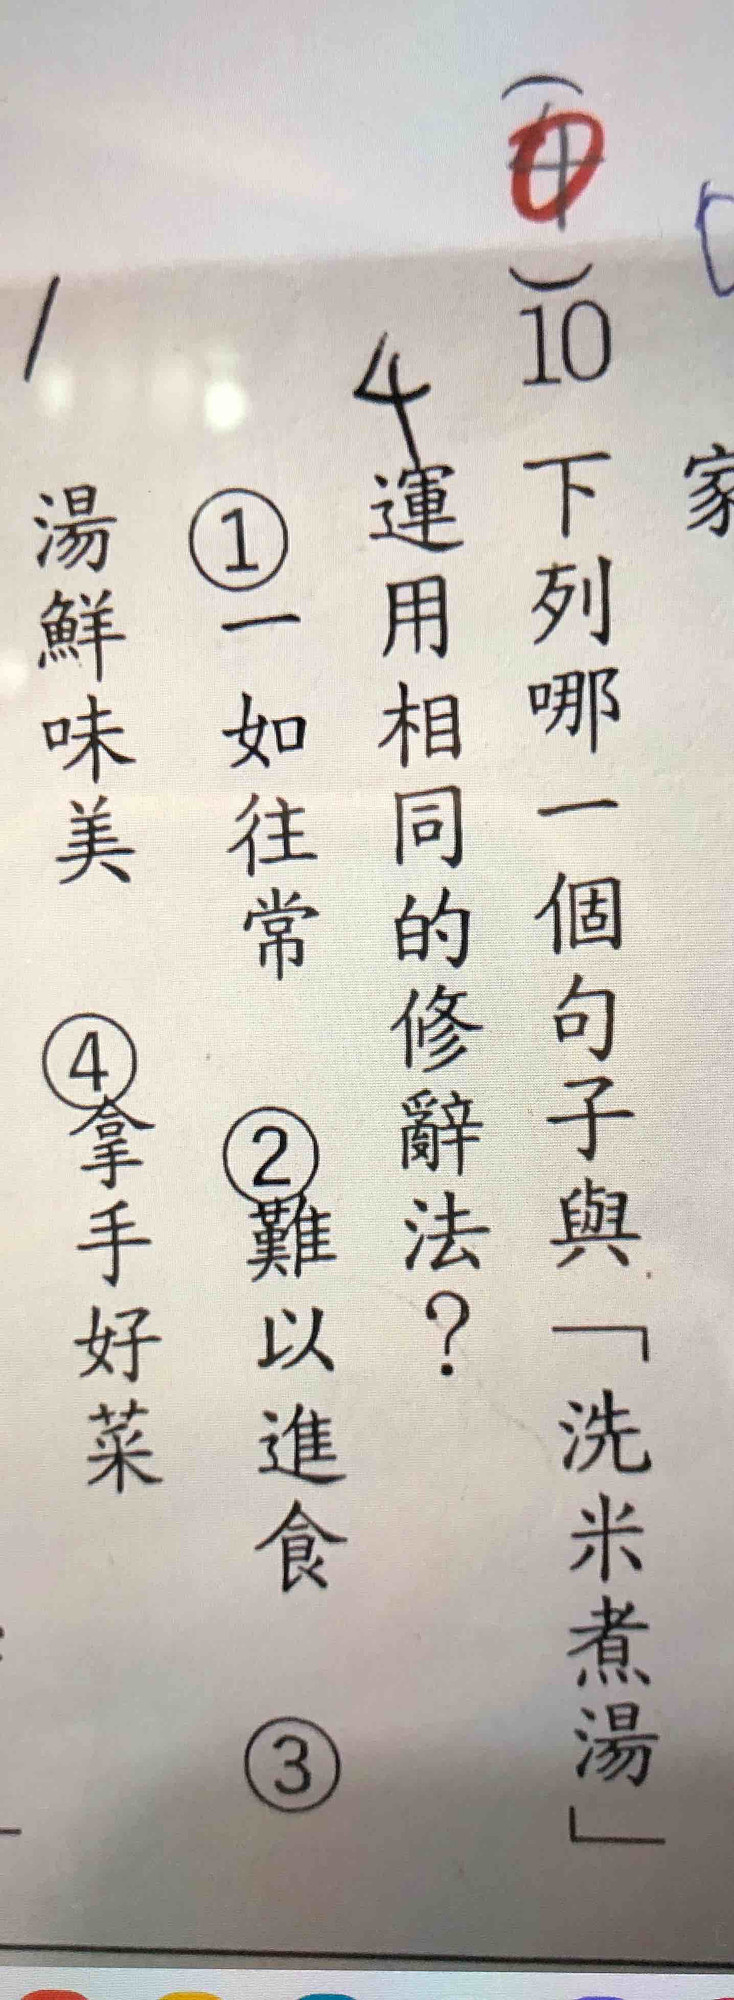 家
(4)10下列哪一個句子與「洗米煮湯」
4運用相同的修辭法?
①一如往常 ②難以進食 ③
湯鮮味美 ④拿手好菜